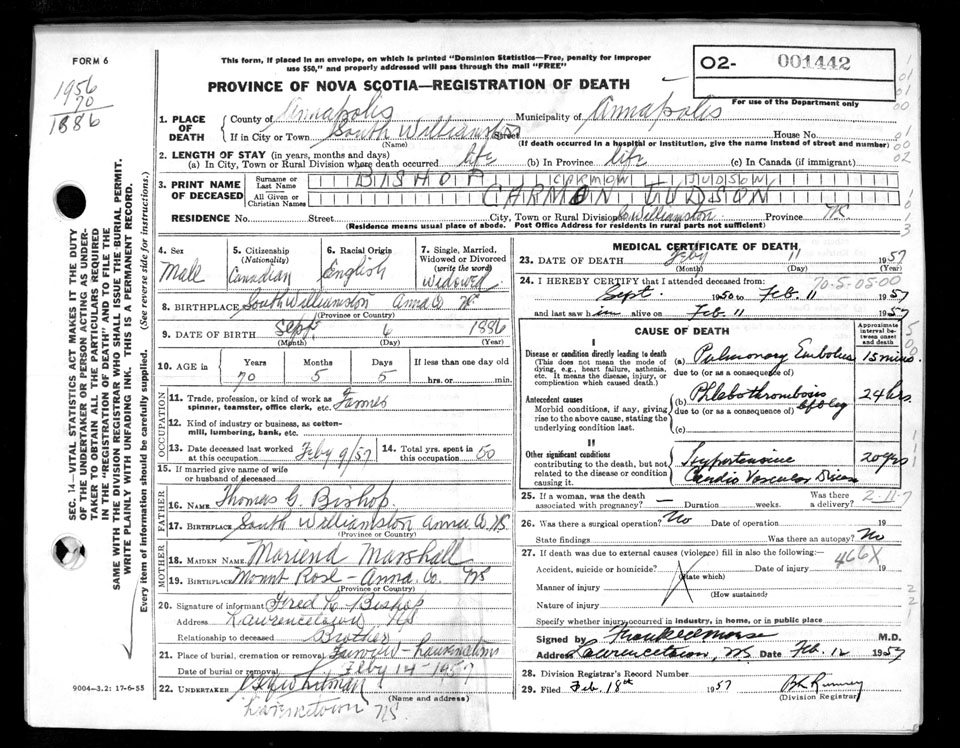 FORM 6
This form, if placed in an envelope, on which is printed "Dominion Statistics—Free, penalty for improper
use $50," and properly addressed will pass through the mail "FREE"
02- 001442
For use of the Department only
PROVINCE OF NOVA SCOTIA—REGISTRATION OF DEATH
1956
70
1886
1. PLACE OF DEATH
County of Annapolis Municipality of Annapolis
If in City or Town South Williamston Street House No.
(Name) (If death occurred in a hospital or institution, give the name instead of street and number)
2. LENGTH OF STAY (in years, months and days)
(a) In City, Town or Rural Division where death occurred life (b) In Province life (c) In Canada (if immigrant)
3. PRINT NAME OF DECEASED
Surname or Last Name BISHOP CARMON JUDSON
All Given or Christian Names CARMON JUDSON
RESIDENCE No. Street City, Town or Rural Division S. Williamston Province NS
(Residence means usual place of abode. Post Office Address for residents in rural parts not sufficient)
4. Sex Male
5. Citizenship (Nationality) Canadian
6. Racial Origin English
7. Single, Married, Widowed or Divorced (write the word) Widowed
8. BIRTHPLACE South Williamston Anna Co NS
(Province or Country)
9. DATE OF BIRTH Sept 6 1886
(Month) (Day) (Year)
10. AGE in Years 70 Months 5 Days 5 If less than one day old hrs. or min.
OCCUPATION
11. Trade, profession, or kind of work as spinner, teamster, office clerk, etc. Farmer
12. Kind of industry or business, as cotton-mill, lumbering, bank, etc.
13. Date deceased last worked at this occupation Feby 9/57
14. Total yrs. spent in this occupation 50
15. If married give name of wife or husband of deceased
FATHER
16. NAME Thomas G. Bishop
17. BIRTHPLACE South Williamston Anna Co. NS.
(Province or Country)
MOTHER
18. MAIDEN NAME Marshall
19. BIRTHPLACE Mount Rose - Anna. Co. NS
(Province or Country)
20. Signature of informant Fred L. Bishop
Address Lawrencetown NS
Relationship to deceased Brother
21. Place of burial, cremation or removal
Date of burial or removal Feby 14-1957
22. UNDERTAKER Whitman
(Name and address)
Lawrencetown NS.
SEC. 14—VITAL STATISTICS ACT MAKES IT THE DUTY
OF THE UNDERTAKER OR PERSON ACTING AS UNDER-
TAKER TO OBTAIN ALL THE PARTICULARS REQUIRED
IN THE "REGISTRATION OF DEATH" AND TO FILE THE
SAME WITH THE DIVISION REGISTRAR WHO SHALL ISSUE THE BURIAL PERMIT.
WRITE PLAINLY WITH UNFADING INK. THIS IS A PERMANENT RECORD.
Every item of information should be carefully supplied. (See reverse side for instructions.)
9004-3.2: 17-6-55
MEDICAL CERTIFICATE OF DEATH
23. DATE OF DEATH Feby 11 1957
(Month) (Day) (Year)
24. I HEREBY CERTIFY that I attended deceased from: 70-5-05-00
Sept. 1950 to Feb. 11 1957
and last saw him alive on Feb. 11 1957
CAUSE OF DEATH
Approximate interval between onset and death
I
Disease or condition directly leading to death
(This does not mean the mode of dying, e.g., heart failure, asthenia, etc. It means the disease, injury, or complication which caused death.)
(a) Pulmonary Embolus 15 mins
due to (or as a consequence of)
Antecedent causes
Morbid conditions, if any, giving rise to the above cause, stating the underlying condition last.
(b) Phlebothrombosis 24 hrs.
due to (or as a consequence of) of leg
(c)
II
Other significant conditions
contributing to the death, but not related to the disease or condition causing it.
Hypertensive 20 yrs
Cardio Vascular Disease
25. If a woman, was the death associated with pregnancy? — Duration weeks. Was there a delivery?
2-11-7
26. Was there a surgical operation? No Date of operation 19
State findings Was there an autopsy? No
27. If death was due to external causes (violence) fill in also the following:—
466X
Accident, suicide or homicide? Date of injury 19
(State which)
Manner of injury
(How sustained)
Nature of injury
Specify whether injury occurred in industry, in home, or in public place
Signed by Frank E Morse M.D.
Address Lawrencetown, NS Date Feb. 12 1957
28. Division Registrar's Record Number
29. Filed Feb. 18th 1957
(Division Registrar)